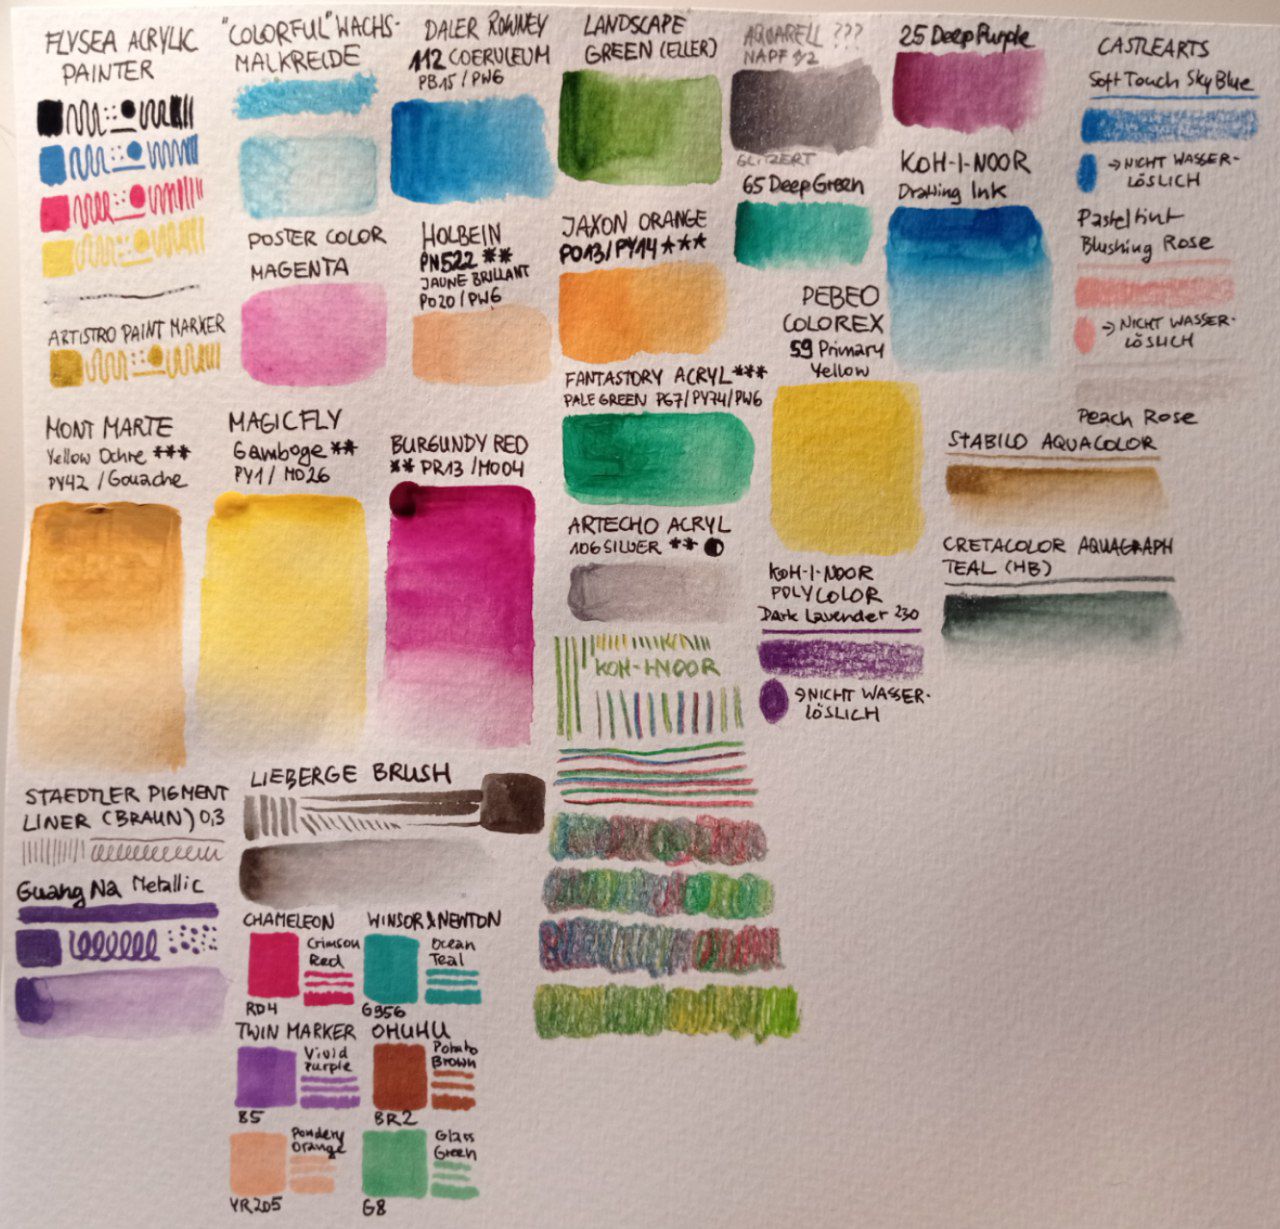 FLYSEA ACRYLIC
PAINTER
ARTISTRO PAINT MARKER
MONT MARTE
Yellow Ochre ***
PY42 / Gouache
"COLORFUL" WACHS-
MALKREIDE
POSTER COLOR
MAGENTA
MAGICFLY
Gamboge **
PY1 / M026
DALER ROWNEY
112 COERULEUM
PB15 / PW6
HOLBEIN
PN522 **
JAUNE BRILLANT
PO20 / PW6
BURGUNDY RED
** PR13 / M004
LANDSCAPE
GREEN (ELLER)
JAXON ORANGE
PO13/PY14 ***
FANTASTORY ACRYL ***
PALE GREEN PG7/PY74/PW6
ARTECHO ACRYL
106 SILVER ** ◐
KOH-I-NOOR
AQUARELL ???
NAPF 1/2
GLITZERT
65 Deep Green
PEBEO
COLOREX
59 Primary
Yellow
KOH-I-NOOR
POLYCOLOR
Dark Lavender 230
→ NICHT WASSER-
LÖSLICH
25 Deep Purple
KOH-I-NOOR
Drawing Ink
STABILO AQUACOLOR
CRETACOLOR AQUAGRAPH
TEAL (HB)
CASTLEARTS
Soft Touch Sky Blue
→ NICHT WASSER-
LÖSLICH
Pastel tint
Blushing Rose
→ NICHT WASSER-
LÖSLICH
Peach Rose
STAEDTLER PIGMENT
LINER (BRAUN) 0,3
Guang Na Metallic
LIEBERGE BRUSH
CHAMELEON
Crimson
Red
RD4
WINSOR & NEWTON
Ocean
Teal
G956
TWIN MARKER
Vivid
Purple
85
OHUHU
Potato
Brown
BR2
Powdery
Orange
YR205
Glass
Green
G8